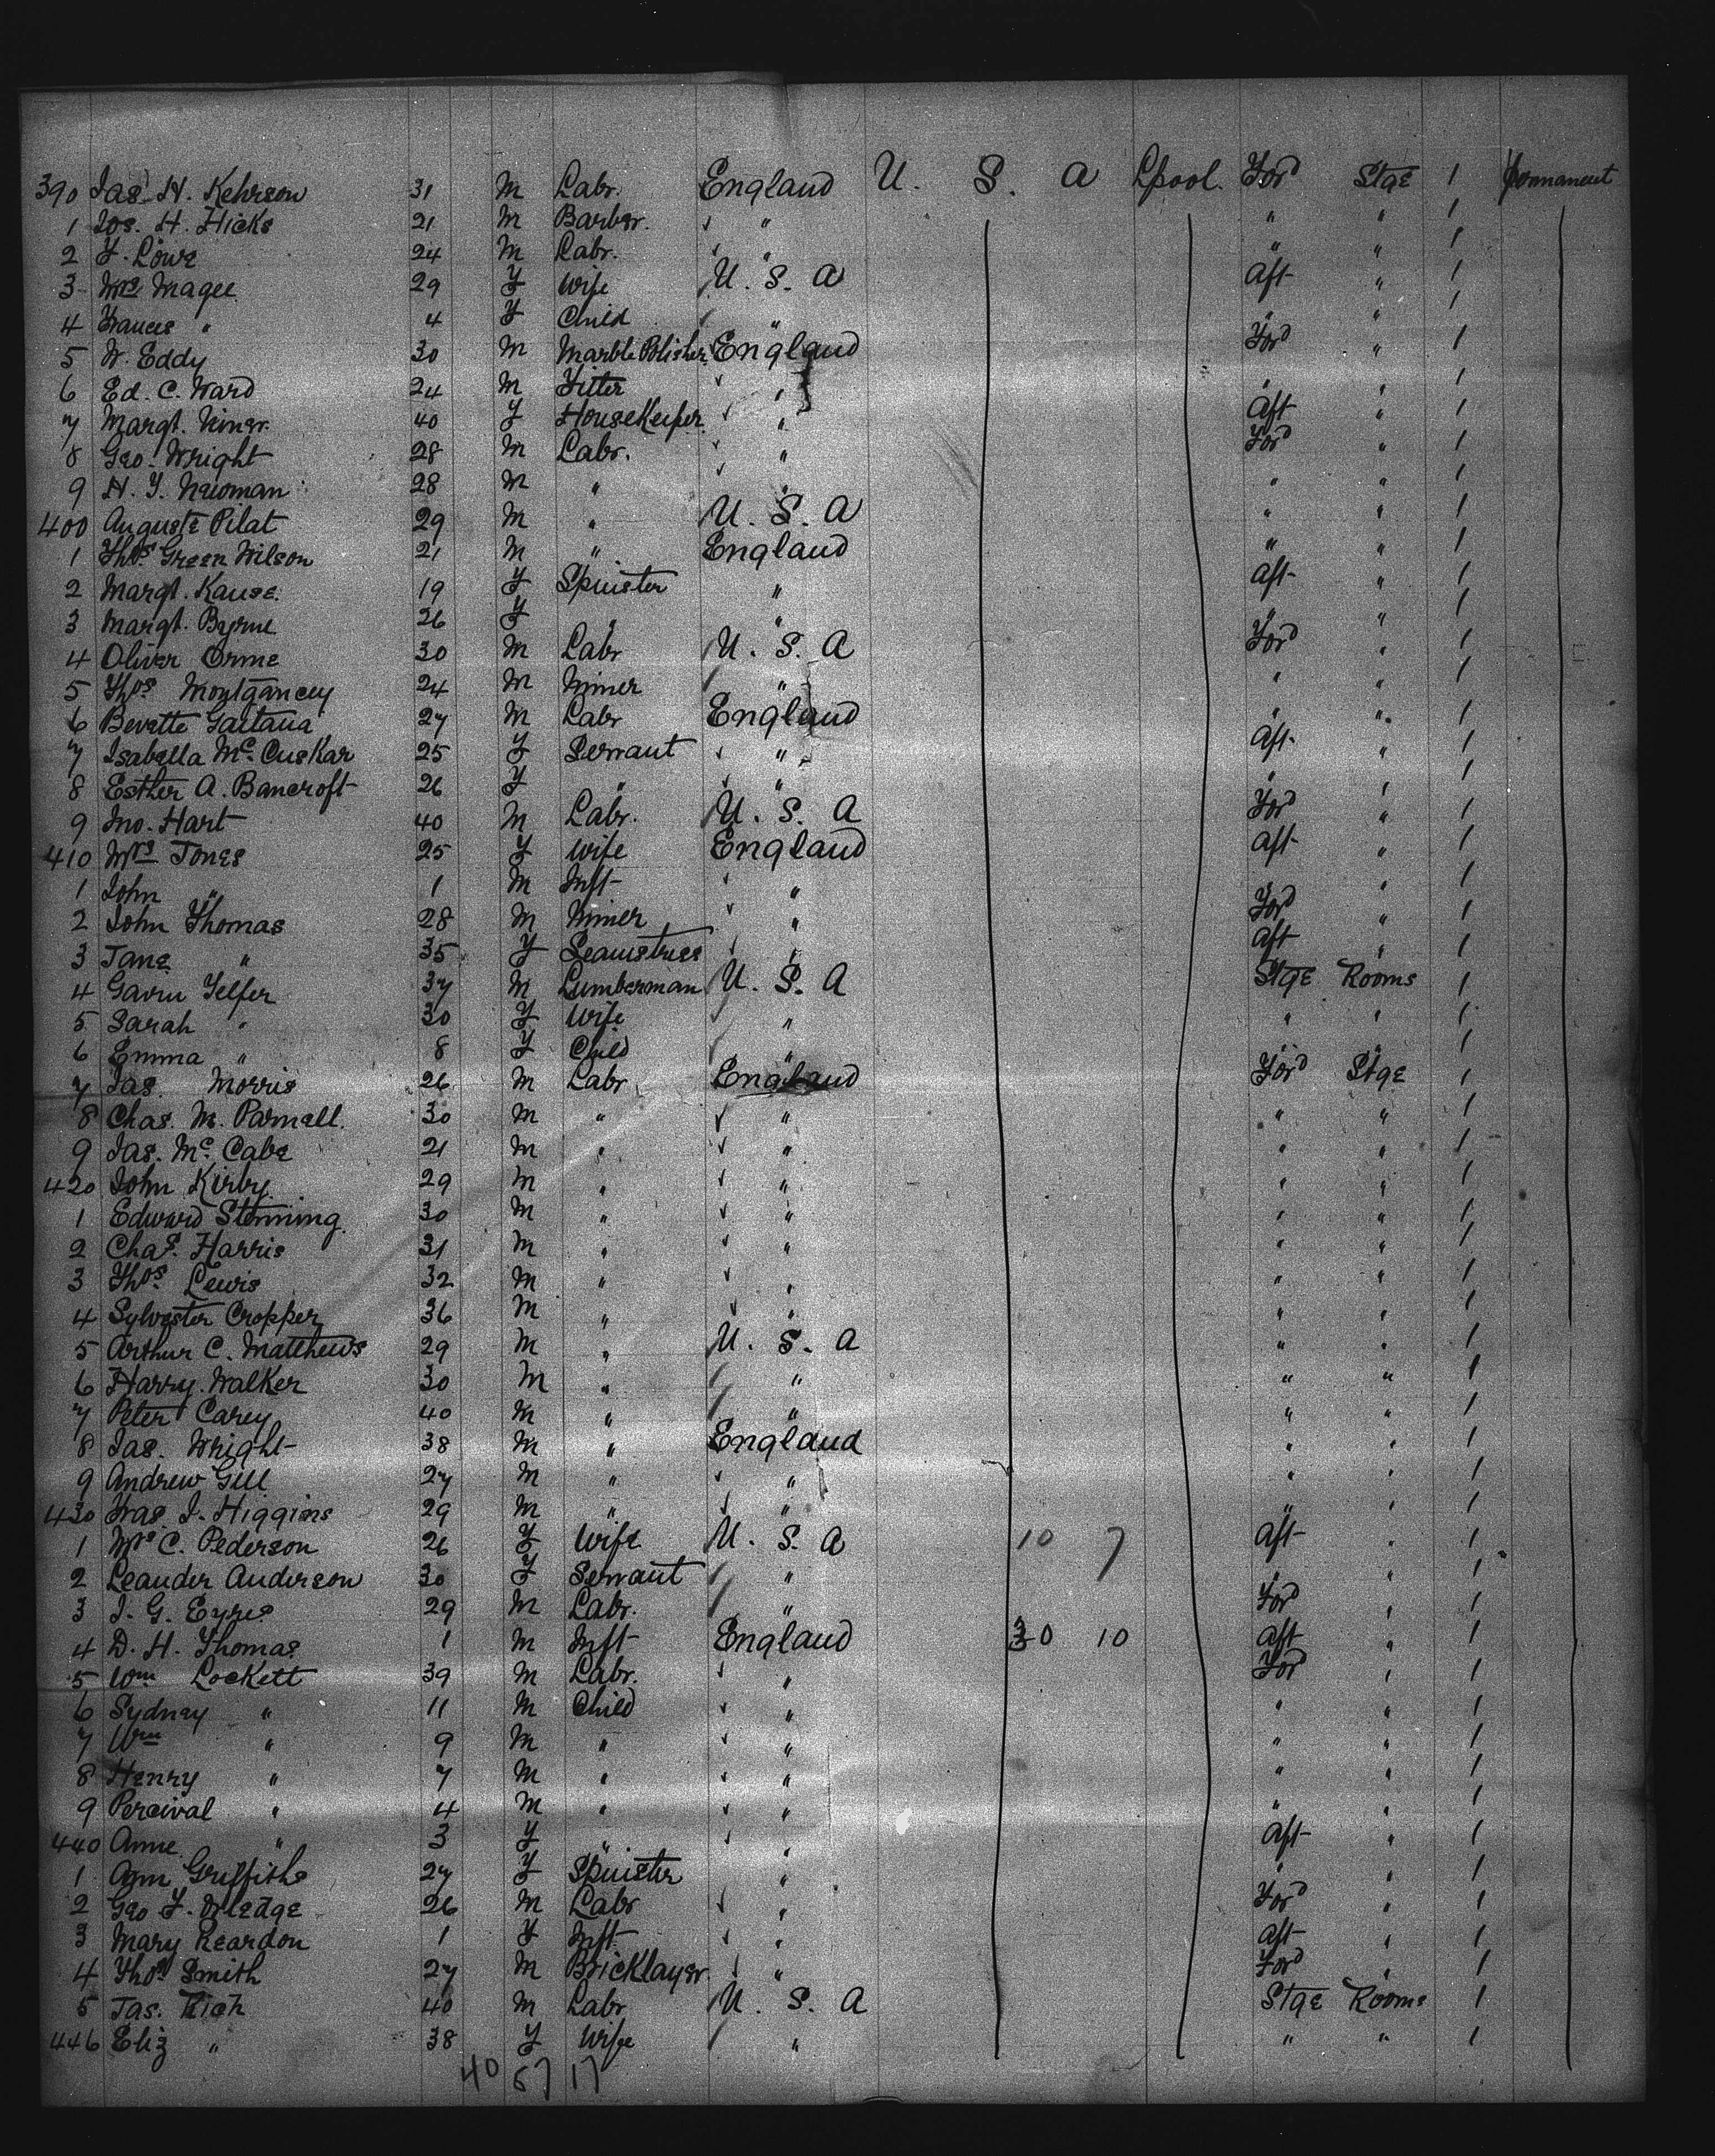 390 Jas. H. Kehrson 31 M Labr. England U. S. A Lpool. Ford Stge 1 Permanent
1 Jos. H. Hicks 21 M Barber. " " " 1
2 F. Lowe 24 M Labr. " " " 1
3 Mrs Magee 29 F Wife U. S. A Aft " 1
4 Frances " 4 F Child " " " 1
5 W. Eddy 30 M Marble Polisher England Ford " 1
6 Ed. C. Ward 24 M Fitter " " " 1
7 Margt. 40 F HouseKeeper " Aft " 1
8 Geo. Wright 28 M Labr. " Ford " 1
9 H. F. Newman 28 M " " " " 1
400 Auguste Pilat 29 M " U. S. A " " 1
1 Thos. Green Wilson 21 M " England " " 1
2 Margt. Kause. 19 F Spinster " Aft " 1
3 Margt. Byrne 26 F " " " " 1
4 Oliver Orme 30 M Labr U. S. A Ford " 1
5 Thos Montgancey 24 M Miner " " " 1
6 Bevette Gaitana 27 M Labr England " " 1
7 Isabella Mc Cuskar 25 F Servant " Aft " 1
8 Esther A. Bancroft 26 F " " " " 1
9 Jno. Hart 40 M Labr. U. S. A Ford " 1
410 Mrs Jones 25 F Wife England Aft " 1
1 John " 1 M Inft " " 1
2 John Thomas 28 M Miner " Ford " 1
3 Jane " 35 F Seamstress " Aft " 1
4 Gavin Telfer 37 M Lumberman U. S. A Stge Rooms 1
5 Sarah " 30 F Wife " " " 1
6 Emma " 8 F Child " " " 1
7 Jas. Morris 26 M Labr England Ford Stge 1
8 Chas. M. Parnell. 30 M " " " " 1
9 Jas. Mc Cabe 21 M " " " " 1
420 John Kirby. 29 M " " " " 1
1 Edward Stenning. 30 M " " " " 1
2 Chas. Harris 31 M " " " " 1
3 Thos. Lewis 32 M " " " " 1
4 Sylvester Cropper 36 M " " " " 1
5 Arthur C. Matthews 29 M " U. S. A " " 1
6 Harry. Walker 30 M " " " " 1
7 Peter Carey 40 M " " " " 1
8 Jas. Wright 38 M " England " " 1
9 Andrew Gill 27 M " " " " 1
430 Fras. J. Higgins 29 M " " " " 1
1 Mrs C. Pederson 26 F Wife U. S. A 10 7 Aft " 1
2 Leander Anderson 30 F Servant " " " 1
3 J. G. Eyres 29 M Labr. " Ford " 1
4 D. H. Thomas 1 M Inft England 30 10 Aft " 1
5 Wm Lockett 39 M Labr. " Ford " 1
6 Sydney " 11 M Child " " " 1
7 Wm " 9 M " " " " 1
8 Henry " 7 M " " " " 1
9 Percival " 4 M " " " " 1
440 Anne " 3 F " " Aft " 1
1 Ann Griffiths 27 F Spinster " " " 1
2 Geo F. 26 M Labr " Ford " 1
3 Mary Reardon 1 F Inft " Aft " 1
4 Thos. Smith 27 M Bricklayer " Ford " 1
5 Jas. Rich 40 M Labr U. S. A Stge Rooms 1
446 Eliz " 38 F Wife " " " 1
40 57 17